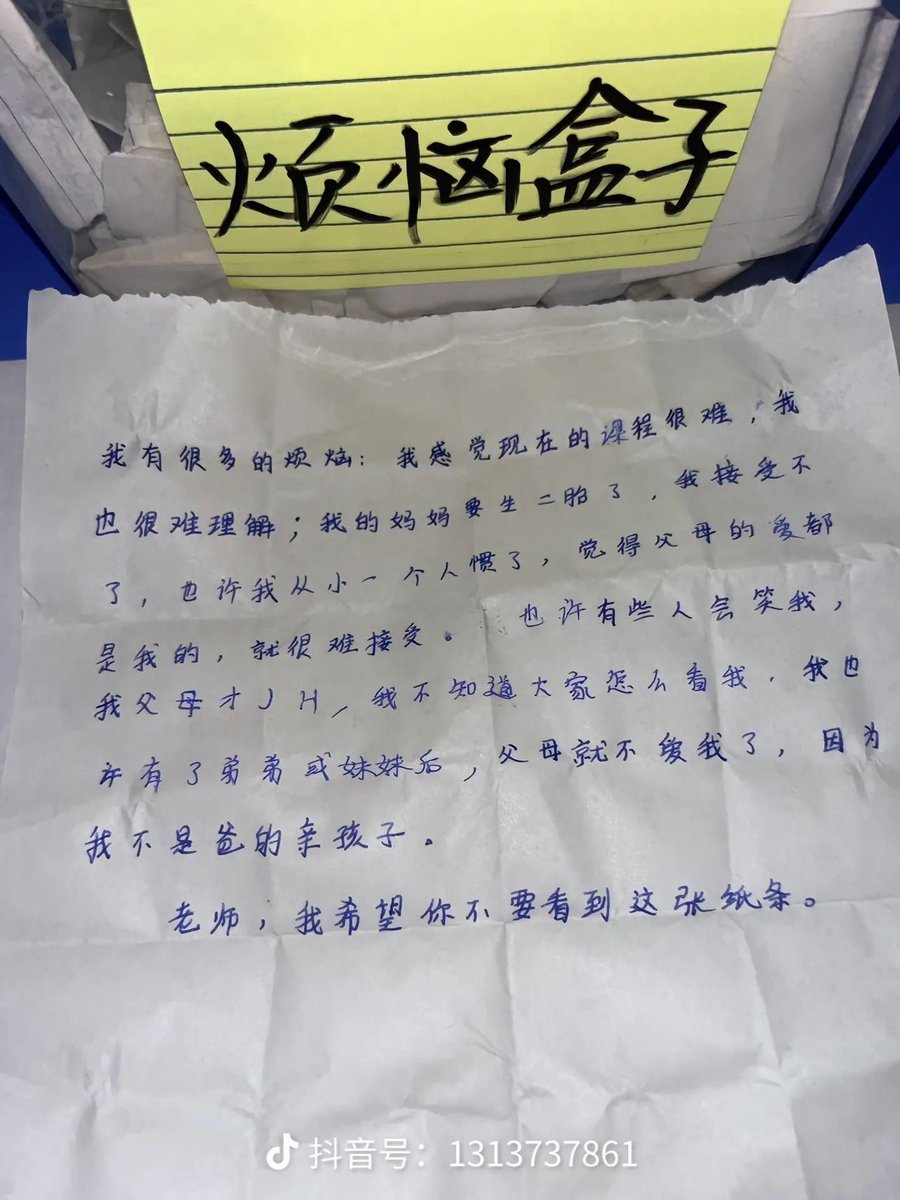 烦恼盒子
我有很多的烦恼：我感觉现在的课程很难，我
也很难理解；我的妈妈要生二胎了，我接受不
了，也许我从小一个人惯了，觉得父母的爱都
是我的，就很难接受。也许有些人会笑我，
我父母才JH，我不知道大家怎么看我，我也
许有了弟弟或妹妹后，父母就不爱我了，因为
我不是爸的亲孩子。
老师，我希望你不要看到这张纸条。
抖音号：1313737861